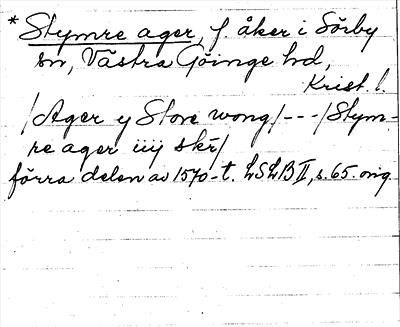 * Stymre ager, f. åker i Sörby
sn, Västra Göinge hd,
Krist. l.
/Ager y Store wong/---/Stym-
re ager iiij skr/
förra delen av 1570-t. LSLB II, s. 65. orig.